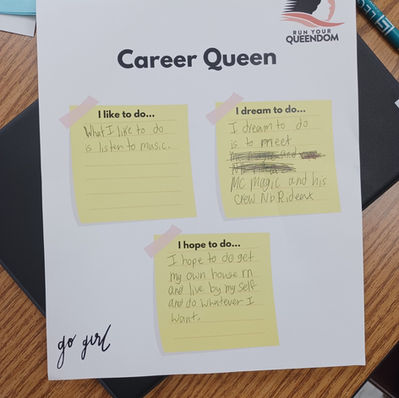 RUN YOUR
QUEENDOM
Career Queen
I like to do...
What I like to do
is listen to music.
I dream to do...
I dream to do
is to meet
MC magic and his
crew Nb.Rident
I hope to do...
I hope to do get
my own house rn
and live by my self
and do whatever I
want.
go girl